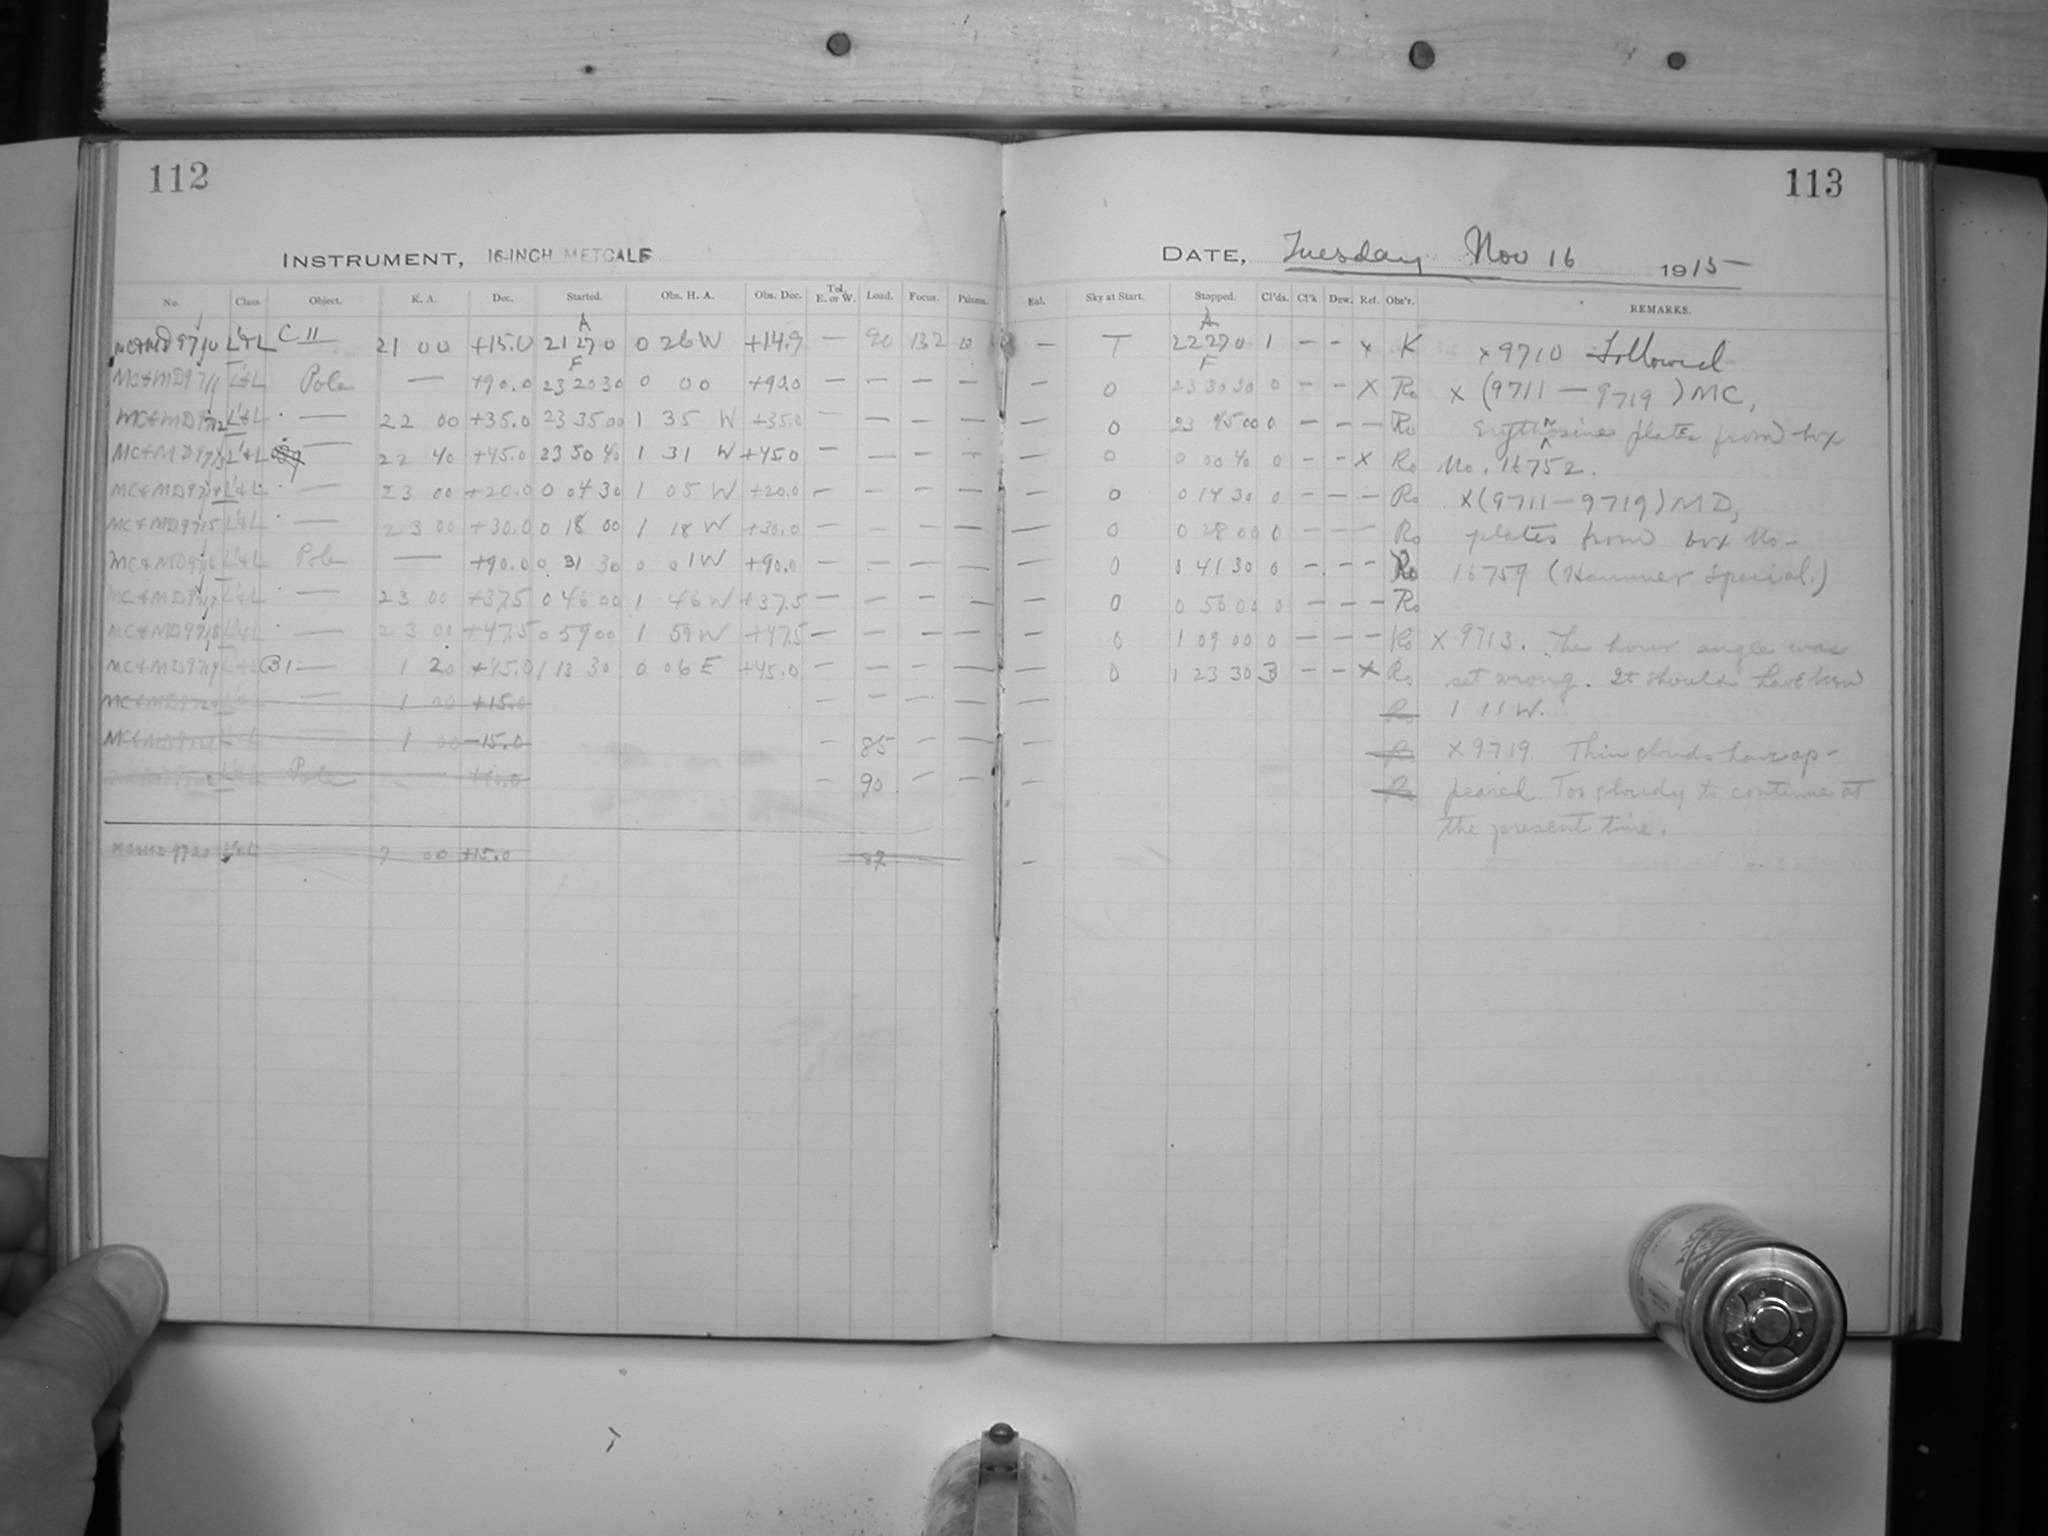 112
113
INSTRUMENT, 16-INCH METCALF
DATE, Tuesday Nov 16 1915
No. Class. Object. R. A. Dec. Started. Obs. H. A. Obs. Dec. Tel. E. or W. Load. Focus. Prisms.
Eal. Sky at Start. Stopped. Cl'ds. Cl'k Dew. Ref. Obs'r. REMARKS.
A
A
MC&MD 9710 L'&L C 11 21 00 +15.0 21 27 0 0 26 W +14.9 — 90 132 0
— T 22 27 0 1 – – x K x 9710 Followed
F
F
MC&MD 9711 L'&L Pole — +90.0 23 20 30 0 00 +90.0 — — — —
— 0 23 30 30 0 – – X Ro x (9711 — 9719) MC,
MC&MD 9712 L'&L — 22 00 +35.0 23 35 00 1 35 W +35.0 — — — —
— 0 23 45 00 0 – – – Ro Erythrosine plates from box
MC&MD 9713 L'&L — 22 40 +45.0 23 50 40 1 31 W +45.0 — — — —
— 0 0 00 40 0 – – X Ro No. 16752.
MC&MD 9714 L'&L — 23 00 +20.0 0 04 30 1 05 W +20.0 — — — —
— 0 0 14 30 0 – – – Ro x (9711 — 9719) MD,
MC&MD 9715 L'&L — 23 00 +30.0 0 18 00 1 18 W +30.0 — — — —
— 0 0 28 00 0 – – – Ro plates from box No-
MC&MD 9716 L'&L Pole — +90.0 0 31 30 0 01 W +90.0 — — — —
— 0 0 41 30 0 – – – Ro 16759 (Hammer Special.)
MC&MD 9717 L'&L — 23 00 +37.5 0 46 00 1 46 W +37.5 — — — —
— 0 0 56 00 0 – – – Ro
MC&MD 9718 L'&L — 23 00 +47.5 0 59 00 1 59 W +47.5 — — — —
— 0 1 09 00 0 – – – Ro X 9713. The hour angle was
MC&MD 9719 L'&L B1 — 1 20 +45.0 1 13 30 0 06 E +45.0 — — — —
— 0 1 23 30 3 – – X Ro set wrong. It should have been
MC&MD 9720 — 1 00 +15.0 — — — —
— Ro 1 11 W.
MC&MD 9721 — 1 00 -15.0 — 85 — —
— Ro X 9719. Thin clouds have ap-
L'&L Pole — +90.0 — 90 — —
— Ro peared. Too cloudy to continue at
the present time.
9720 L'&L 00 +15.0 87
—